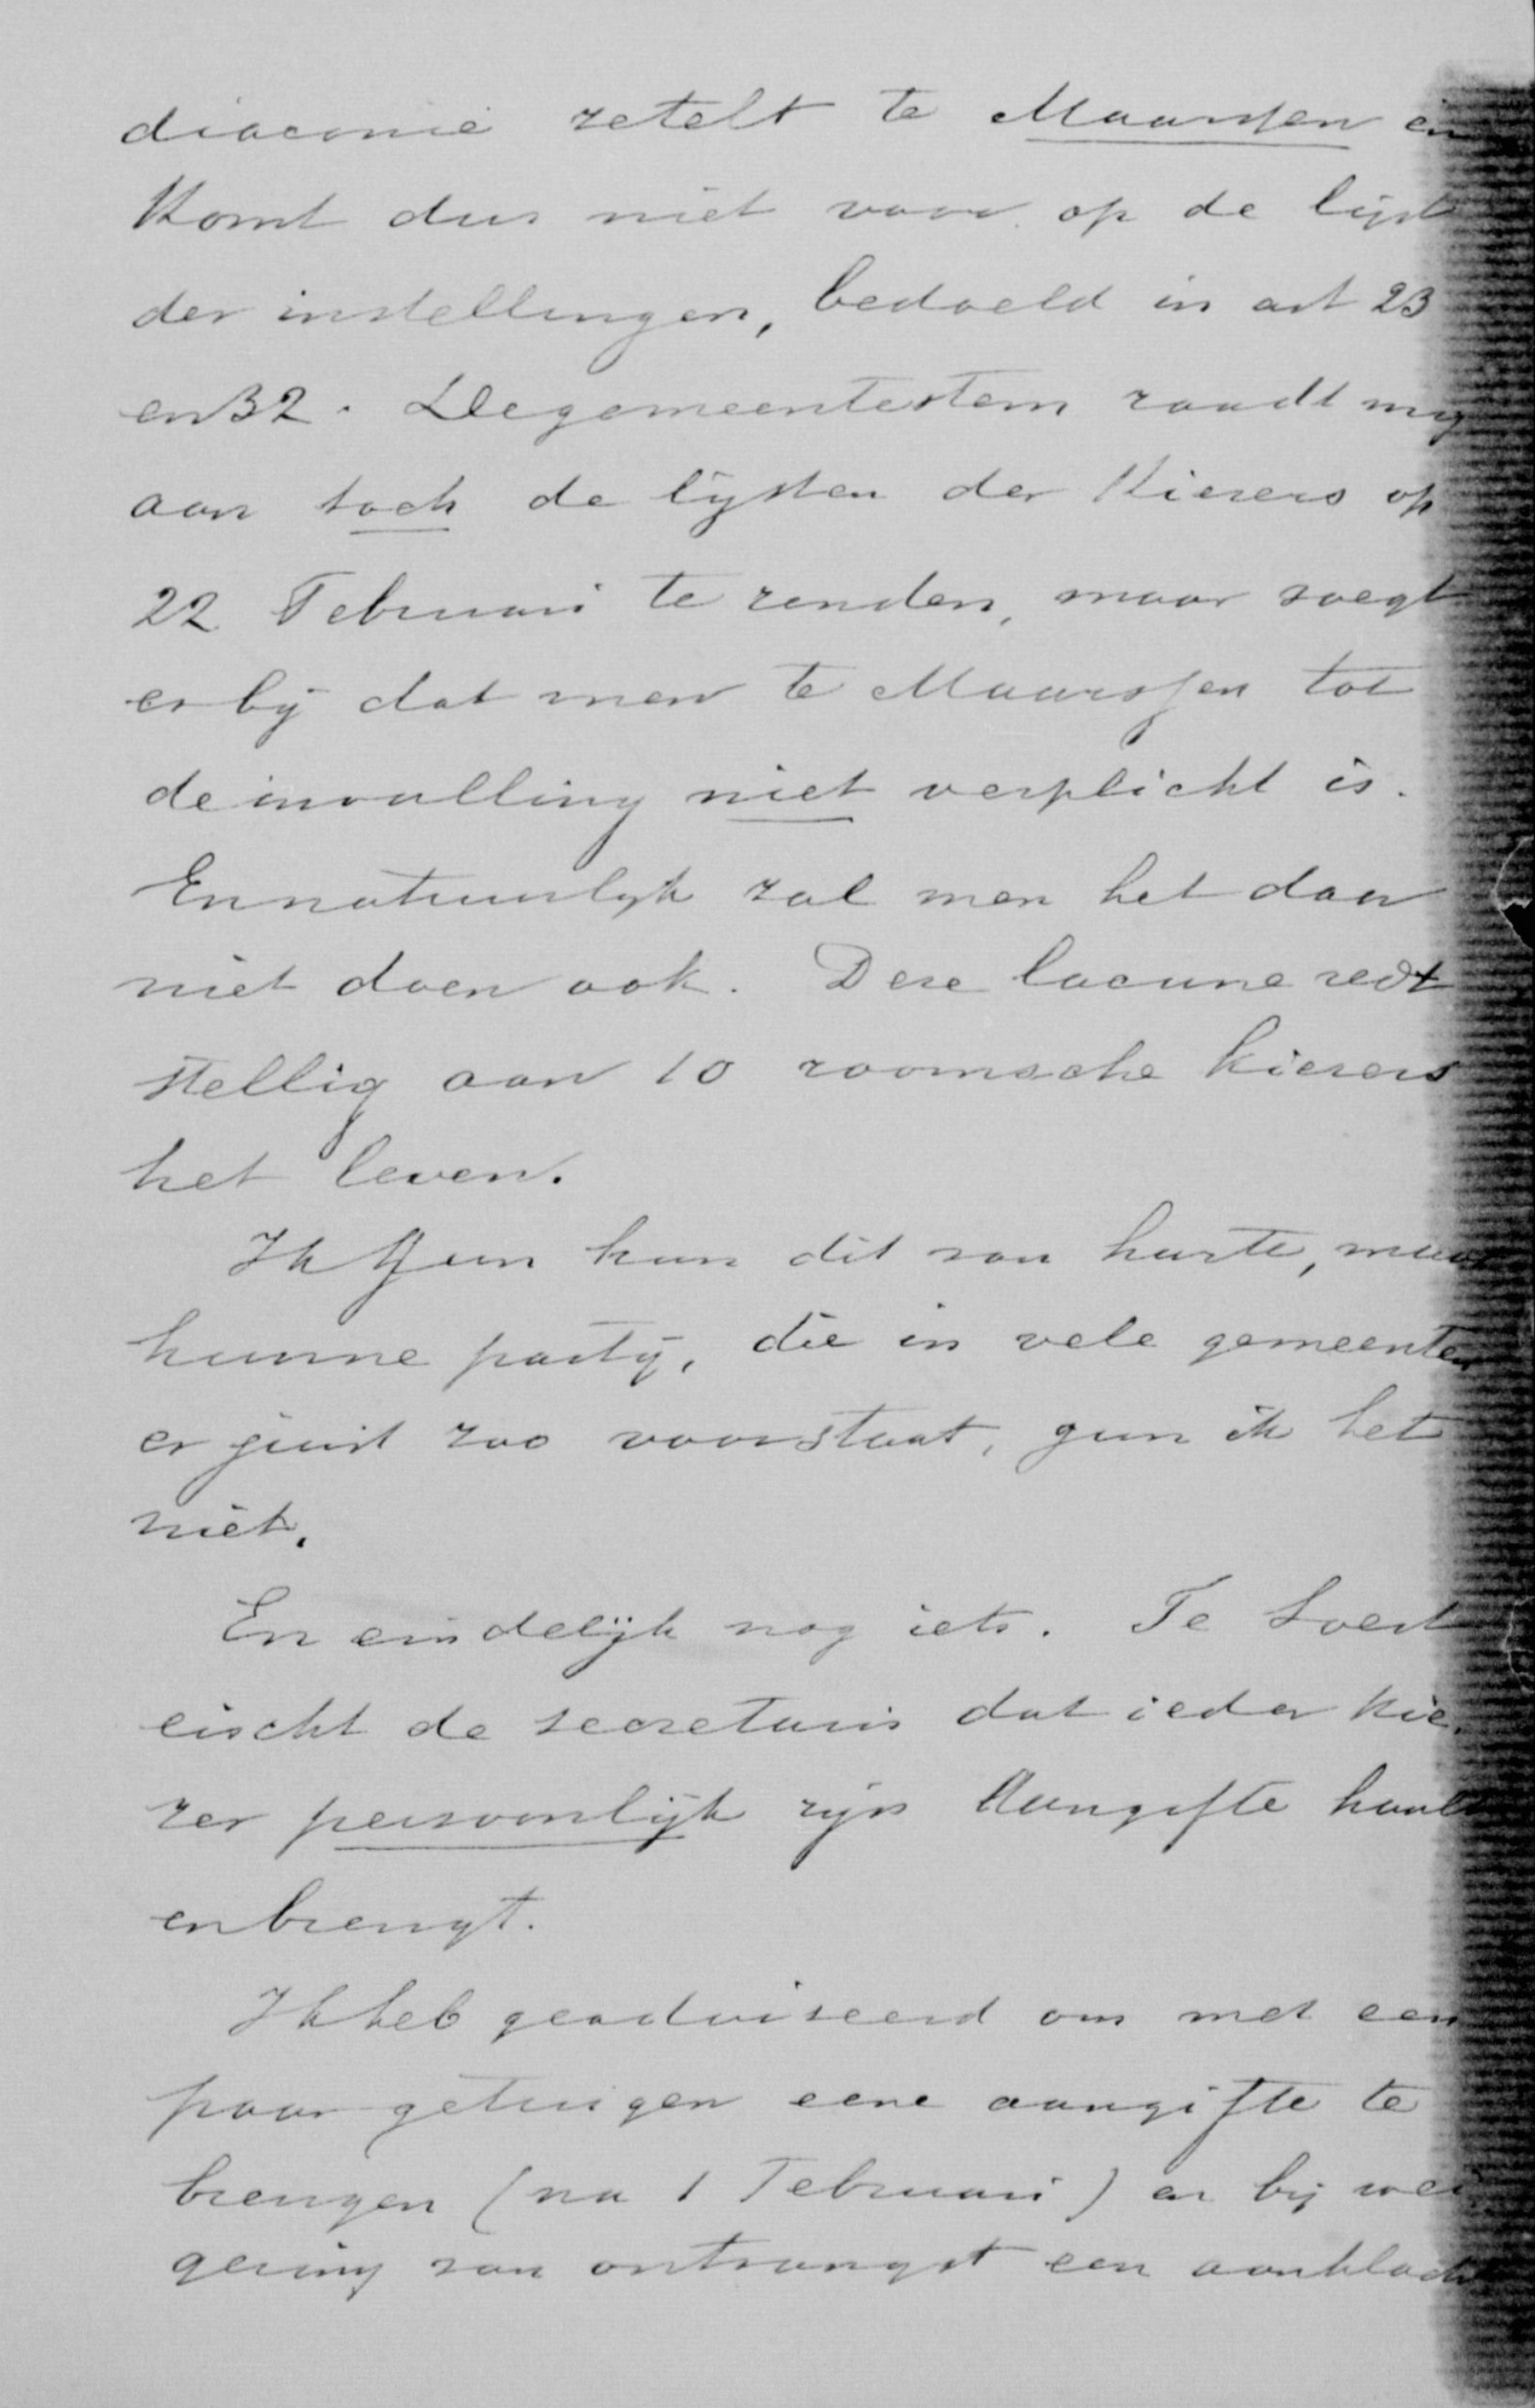 diaconie zetelt te Maarssen en
komt dus niet voor op de lijst
der instellingen, bedoeld in art 23
en 32. De gemeentestem raadt mij
aan toch de lijsten der kiezers op
22 Februari te zenden, maar voegt
er bij dat men te Maarssen tot
de invulling niet verplicht is.
En natuurlijk zal men het daar
niet doen ook. Deze lacune redt
stellig aan 10 roomsche kiezers
het leven.
Ik gun hun dit van harte, maar
hunne partij, die in vele gemeenten
er juist zoo voorstaat, gun ik het
niet.
En eindelijk nog iets. Te Soest
eischt de secretaris dat ieder kie-
zer persoonlijk zijn aangifte haalt
en brengt.
Ik heb geadviseerd om met een
paar getuigen eene aangifte te
brengen (na 1 Februari) en bij wei-
gering van ontvangst een aanklacht